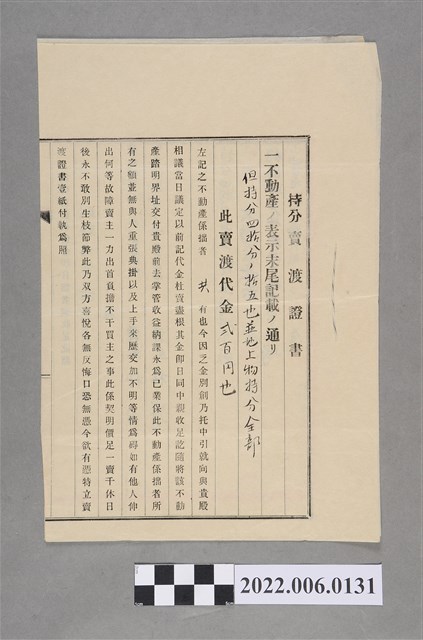 持分賣渡證書
一不動産ノ表示末尾記載ノ通リ
但持分四拾分ノ拾五也並地上物持分全部
此賣渡代金弐百円也
左記之不動産係拙者共有也今因乏金別創乃托中引就向與貴殿
相議當日議定以前記代金杜賣盡根其金即日同中親收足訖隨將該不動
産踏明界址交付貴殿前去掌管收益納課永為己業保此不動産係拙者所
有之額並無與人重張典掛以及上手來歷交加不明等情為碍如有他人伸
出何等故障賣主一力出首頁擔不干買主之事此係契明價足一賣千休日
後永不敢別生枝節弊此乃双方喜悅各無反悔口恐無憑今欲有憑特立賣
渡證書壹紙付執為照
2022.006.0131